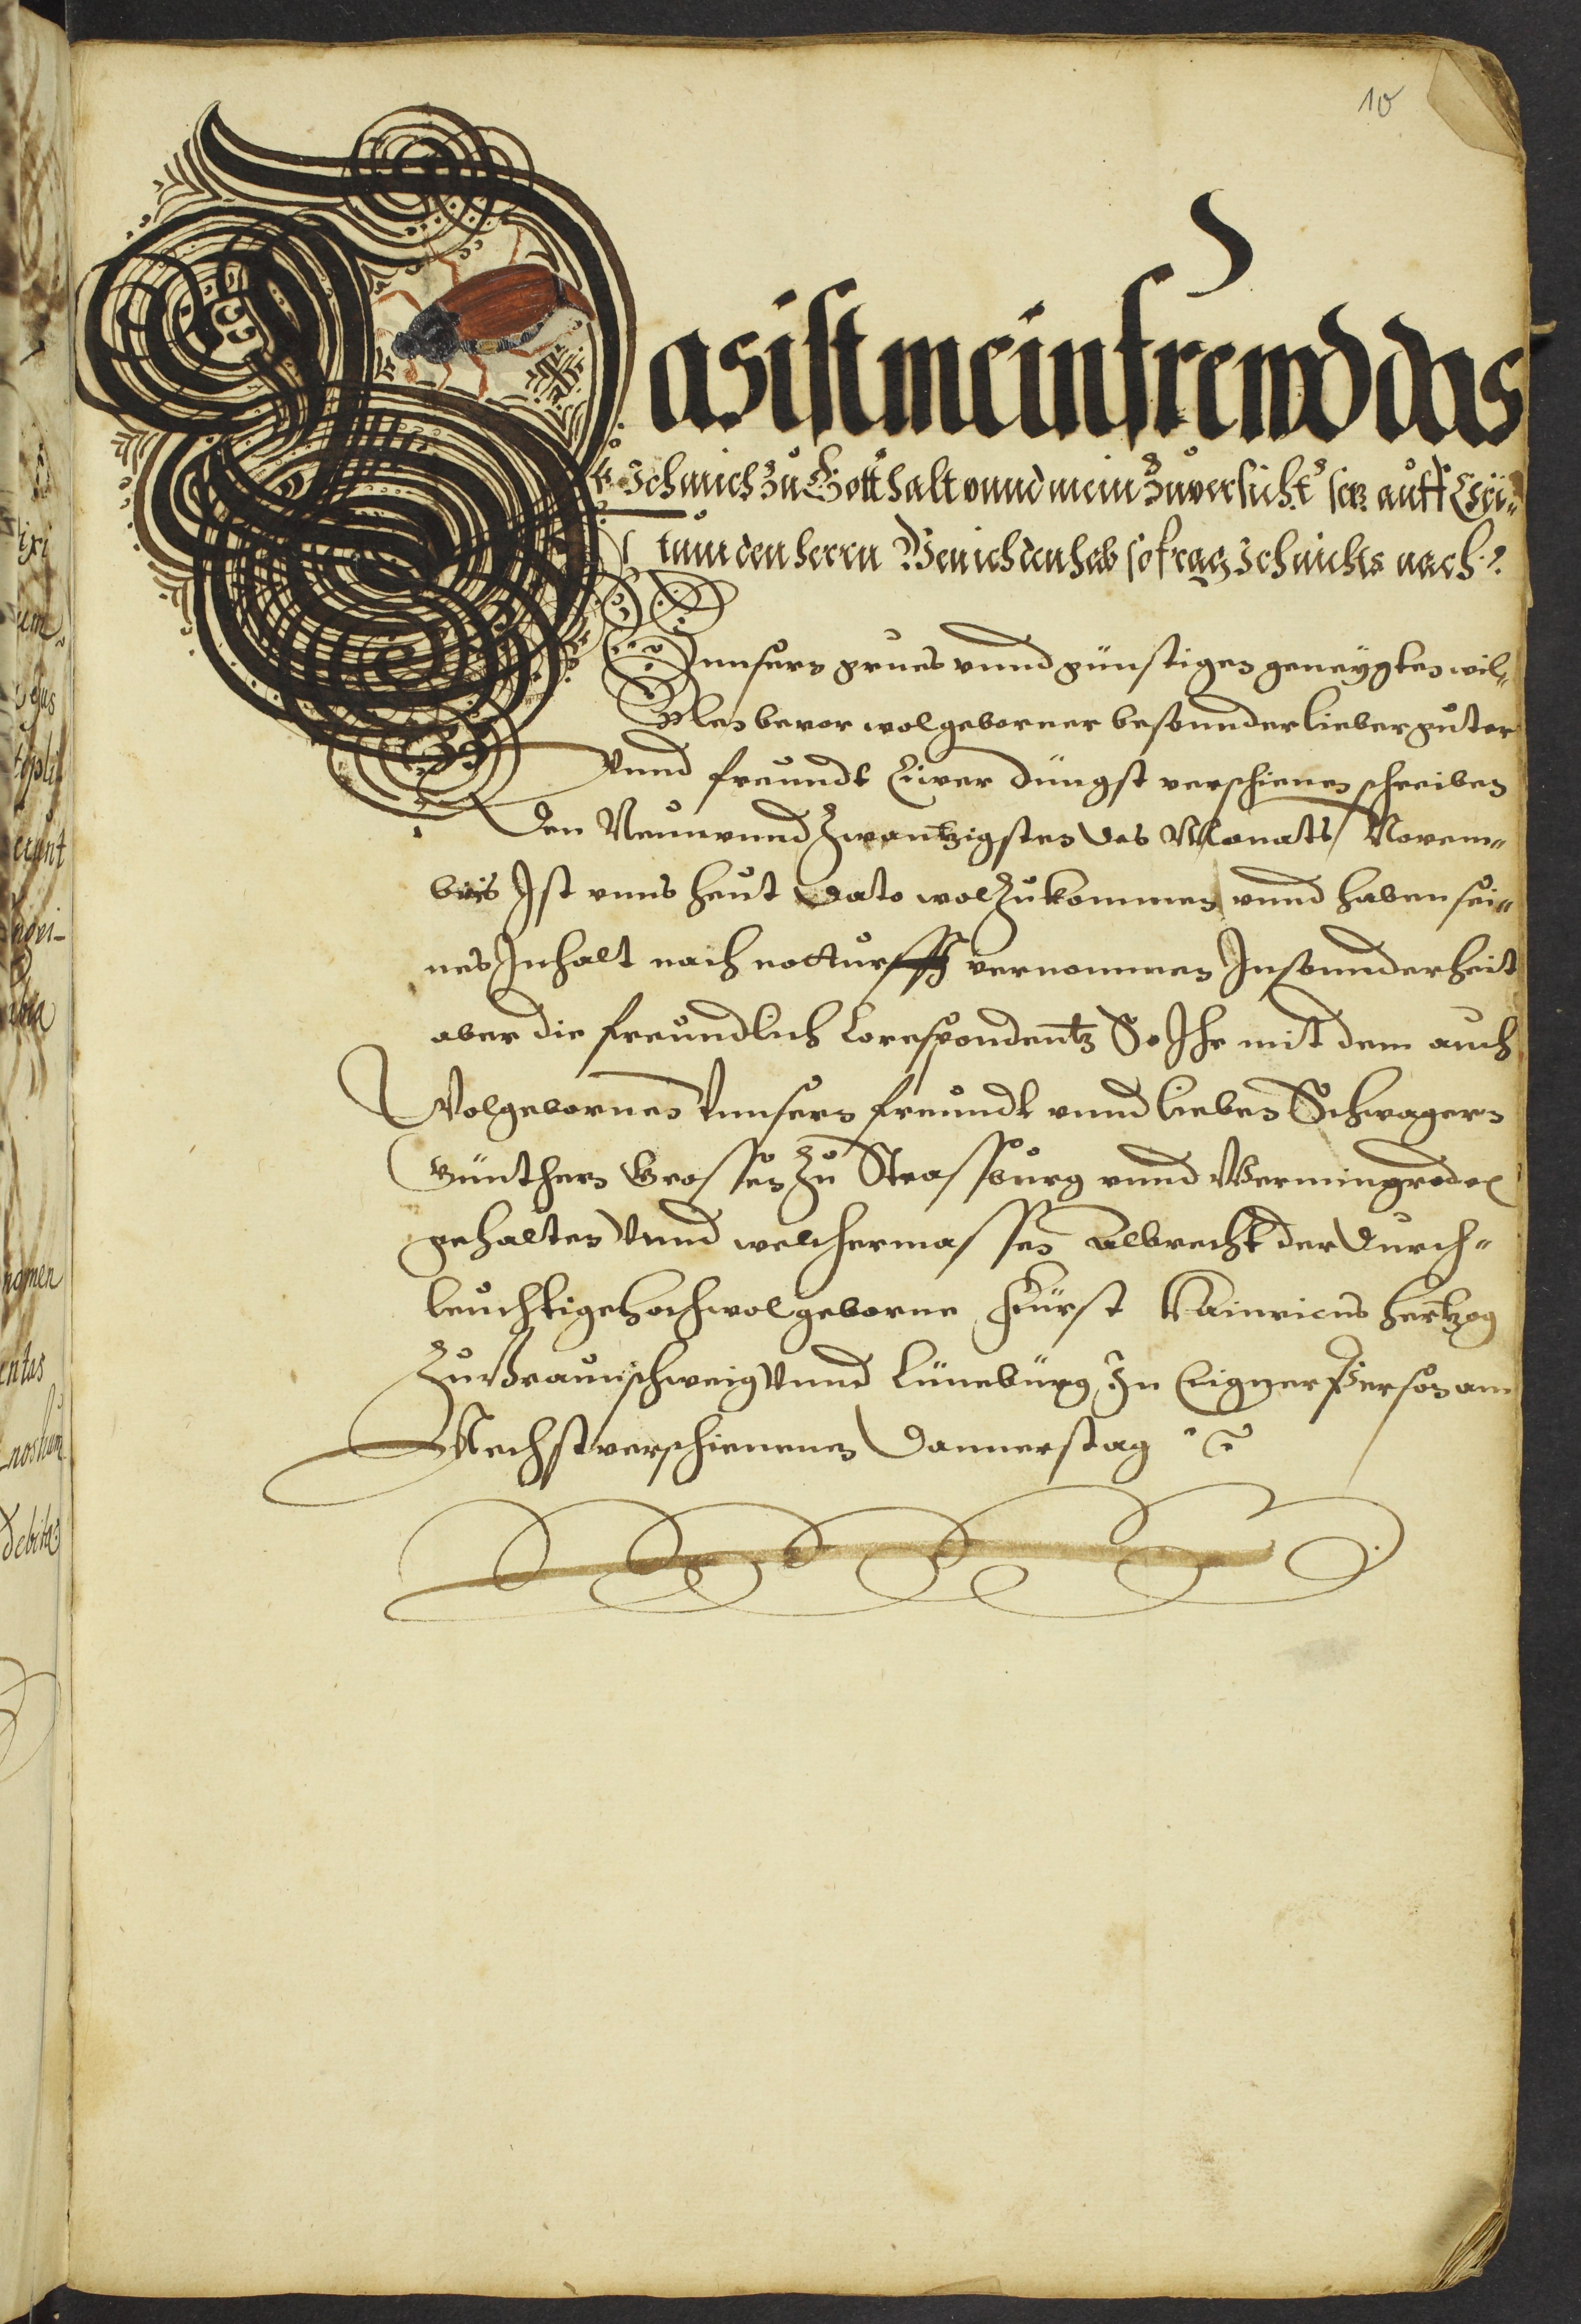 10
Das ist mein frewd das
Ich mich zu Gott halt vnnd mein Zuversicht setz auff Chri„
tum den herrn Wen ich den hab so frag Ich nichts nach
Vnnsern grues vnnd günstigen geneygten wil„
len bevor wolgeborner besonnder lieber guter
Vnnd freundt Eüwer Jüngst verschienen schreiben
Den Neunvnnd Zwantzigsten des Monats Novem„
bris Ist vnns heut dato wol Zukommen vnnd haben sei„
nes Inhalt nach notturfft vernommen Insonnderheit
aber die freundlich Corespondentz So Ihr mit dem auch
Wolgebornen Vnnsern freundt vnnd lieben Schwagern
Günthern Grossen Zu Strassburg vnnd
gehalten Vnnd welchermassen Albrecht der Durch„
leuchtige hochwolgeborne Fürst Hainricus hertzog
Zu Braunschweig Vnnd Lüneburg In Eigner Person am
Nechst verschienenen Donnerstag
lixi
um
erunt
nomen
entas
nostrum
debita